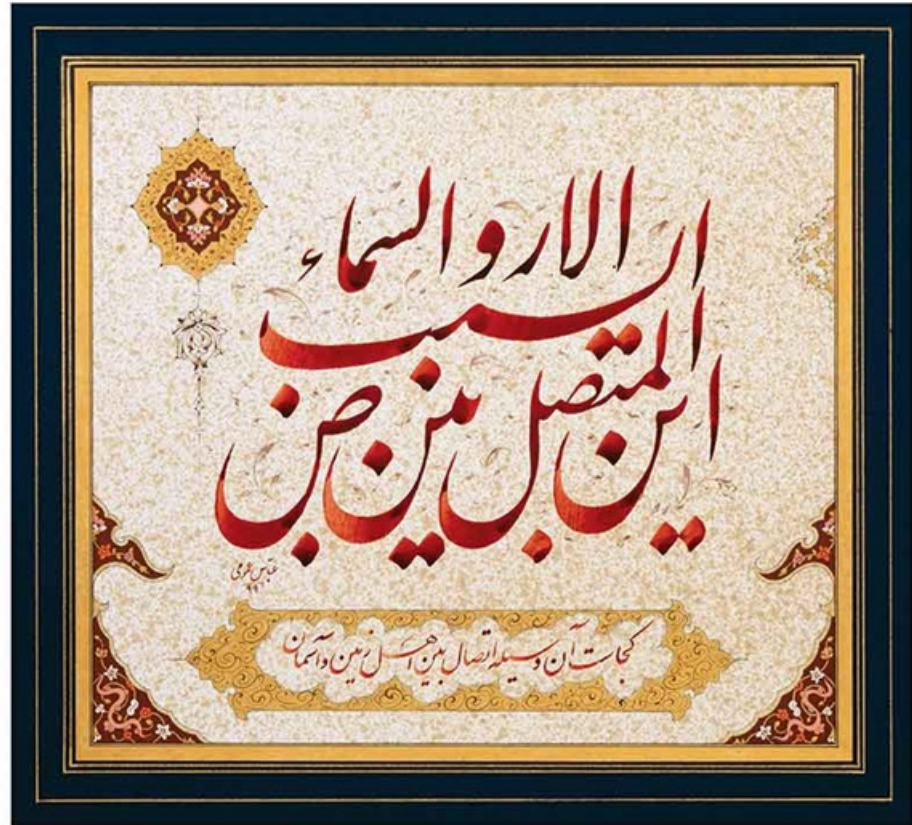 این السبب المتصل بین الارض و السماء
عباس عزمی
کجاست آن وسیله اتصال بین اهل زمین و آسمان